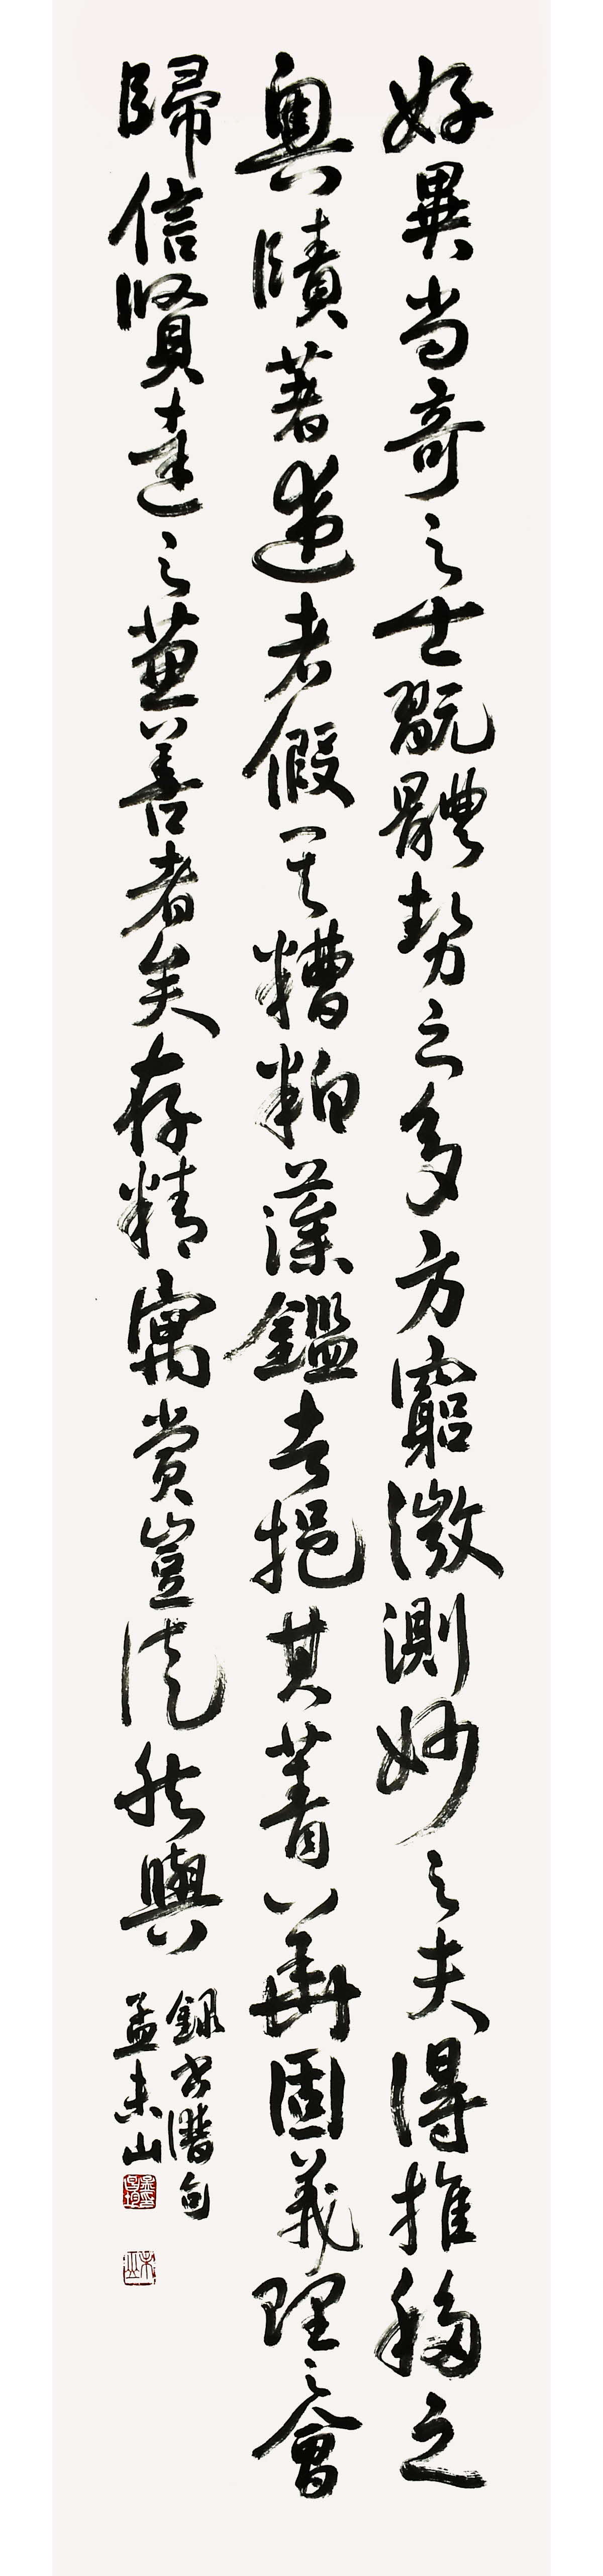 好異尚奇之士翫體勢之多方窮微測妙之夫得推移之
奧賾著述者假其糟粕藻鑑者挹其菁華固義理之會
歸信賢達之兼善者矣存精寓賞豈徒然與
錄書譜句
孟未山